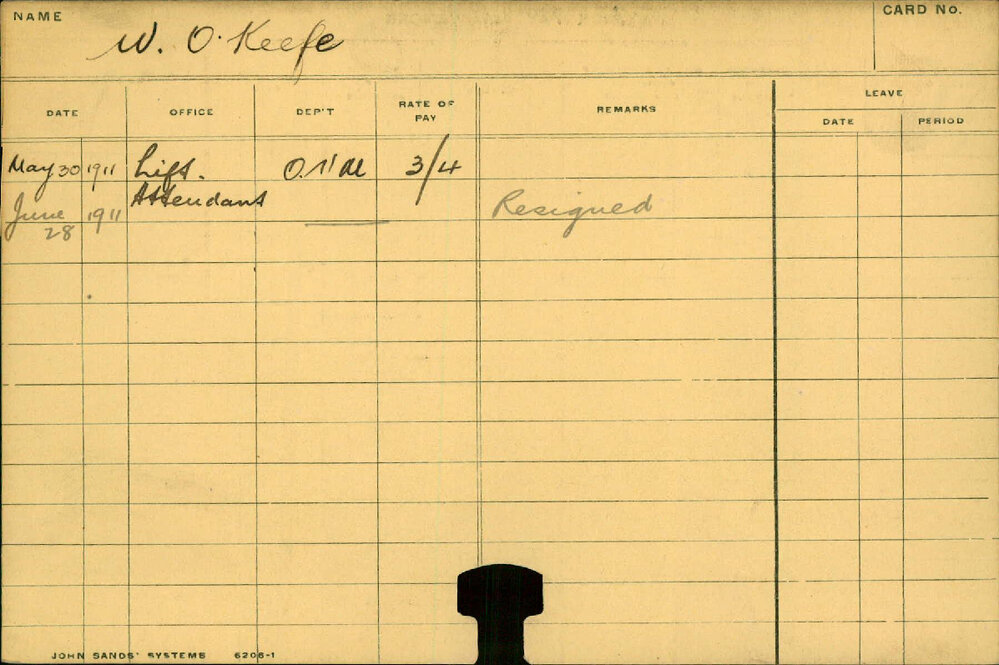 NAME
CARD No.
W. O'Keefe
DATE OFFICE DEP'T RATE OF PAY REMARKS LEAVE
DATE PERIOD
May 30 1911 Lift. 3/4
Attendant
June 28 1911 Resigned
JOHN SANDS' SYSTEMS 6206-1